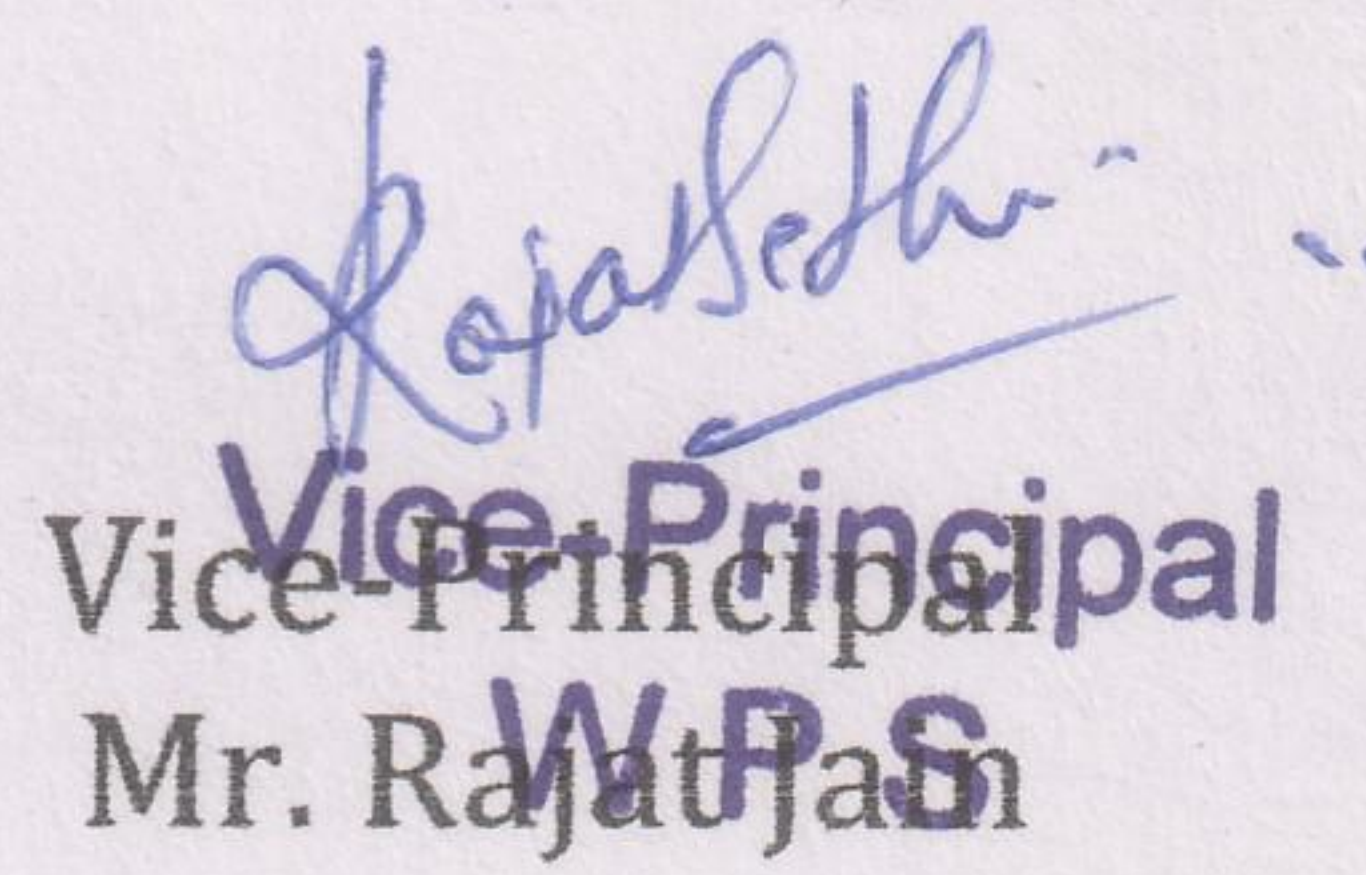 Rajat Sethi
Vice-Principal
Vice-Principal
W P S
Mr. Rajat Jain